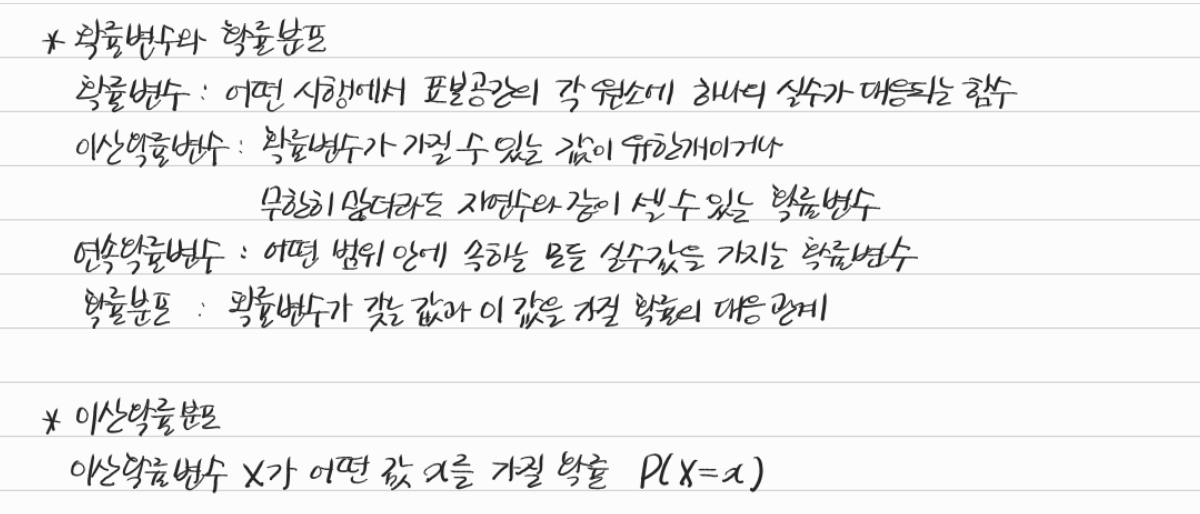 * 확률변수와 확률분포
확률변수 : 어떤 시행에서 표본공간의 각 원소에 하나의 실수가 대응되는 함수
이산확률변수 : 확률변수가 가질 수 있는 값이 유한개이거나
무한히 많더라도 자연수와 같이 셀 수 있는 확률변수
연속확률변수 : 어떤 범위 안에 속하는 모든 실수값을 가지는 확률변수
확률분포 : 확률변수가 갖는 값과 이 값을 가질 확률의 대응관계
* 이산확률분포
이산확률변수 X가 어떤 값 x를 가질 확률 P(X=x)